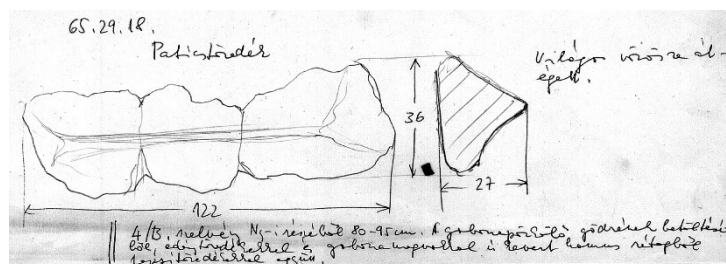 65.29.18.
Paticstöredék
Világos vörösre át-
égett.
36
27
122
4/B. szelvény N5-i részéből 80-95 cm. A gabonapörkölő gödrének betöltésé-
ből, edénytöredékekkel és gabonamagvakkal is kevert humus rétegből
együtt.